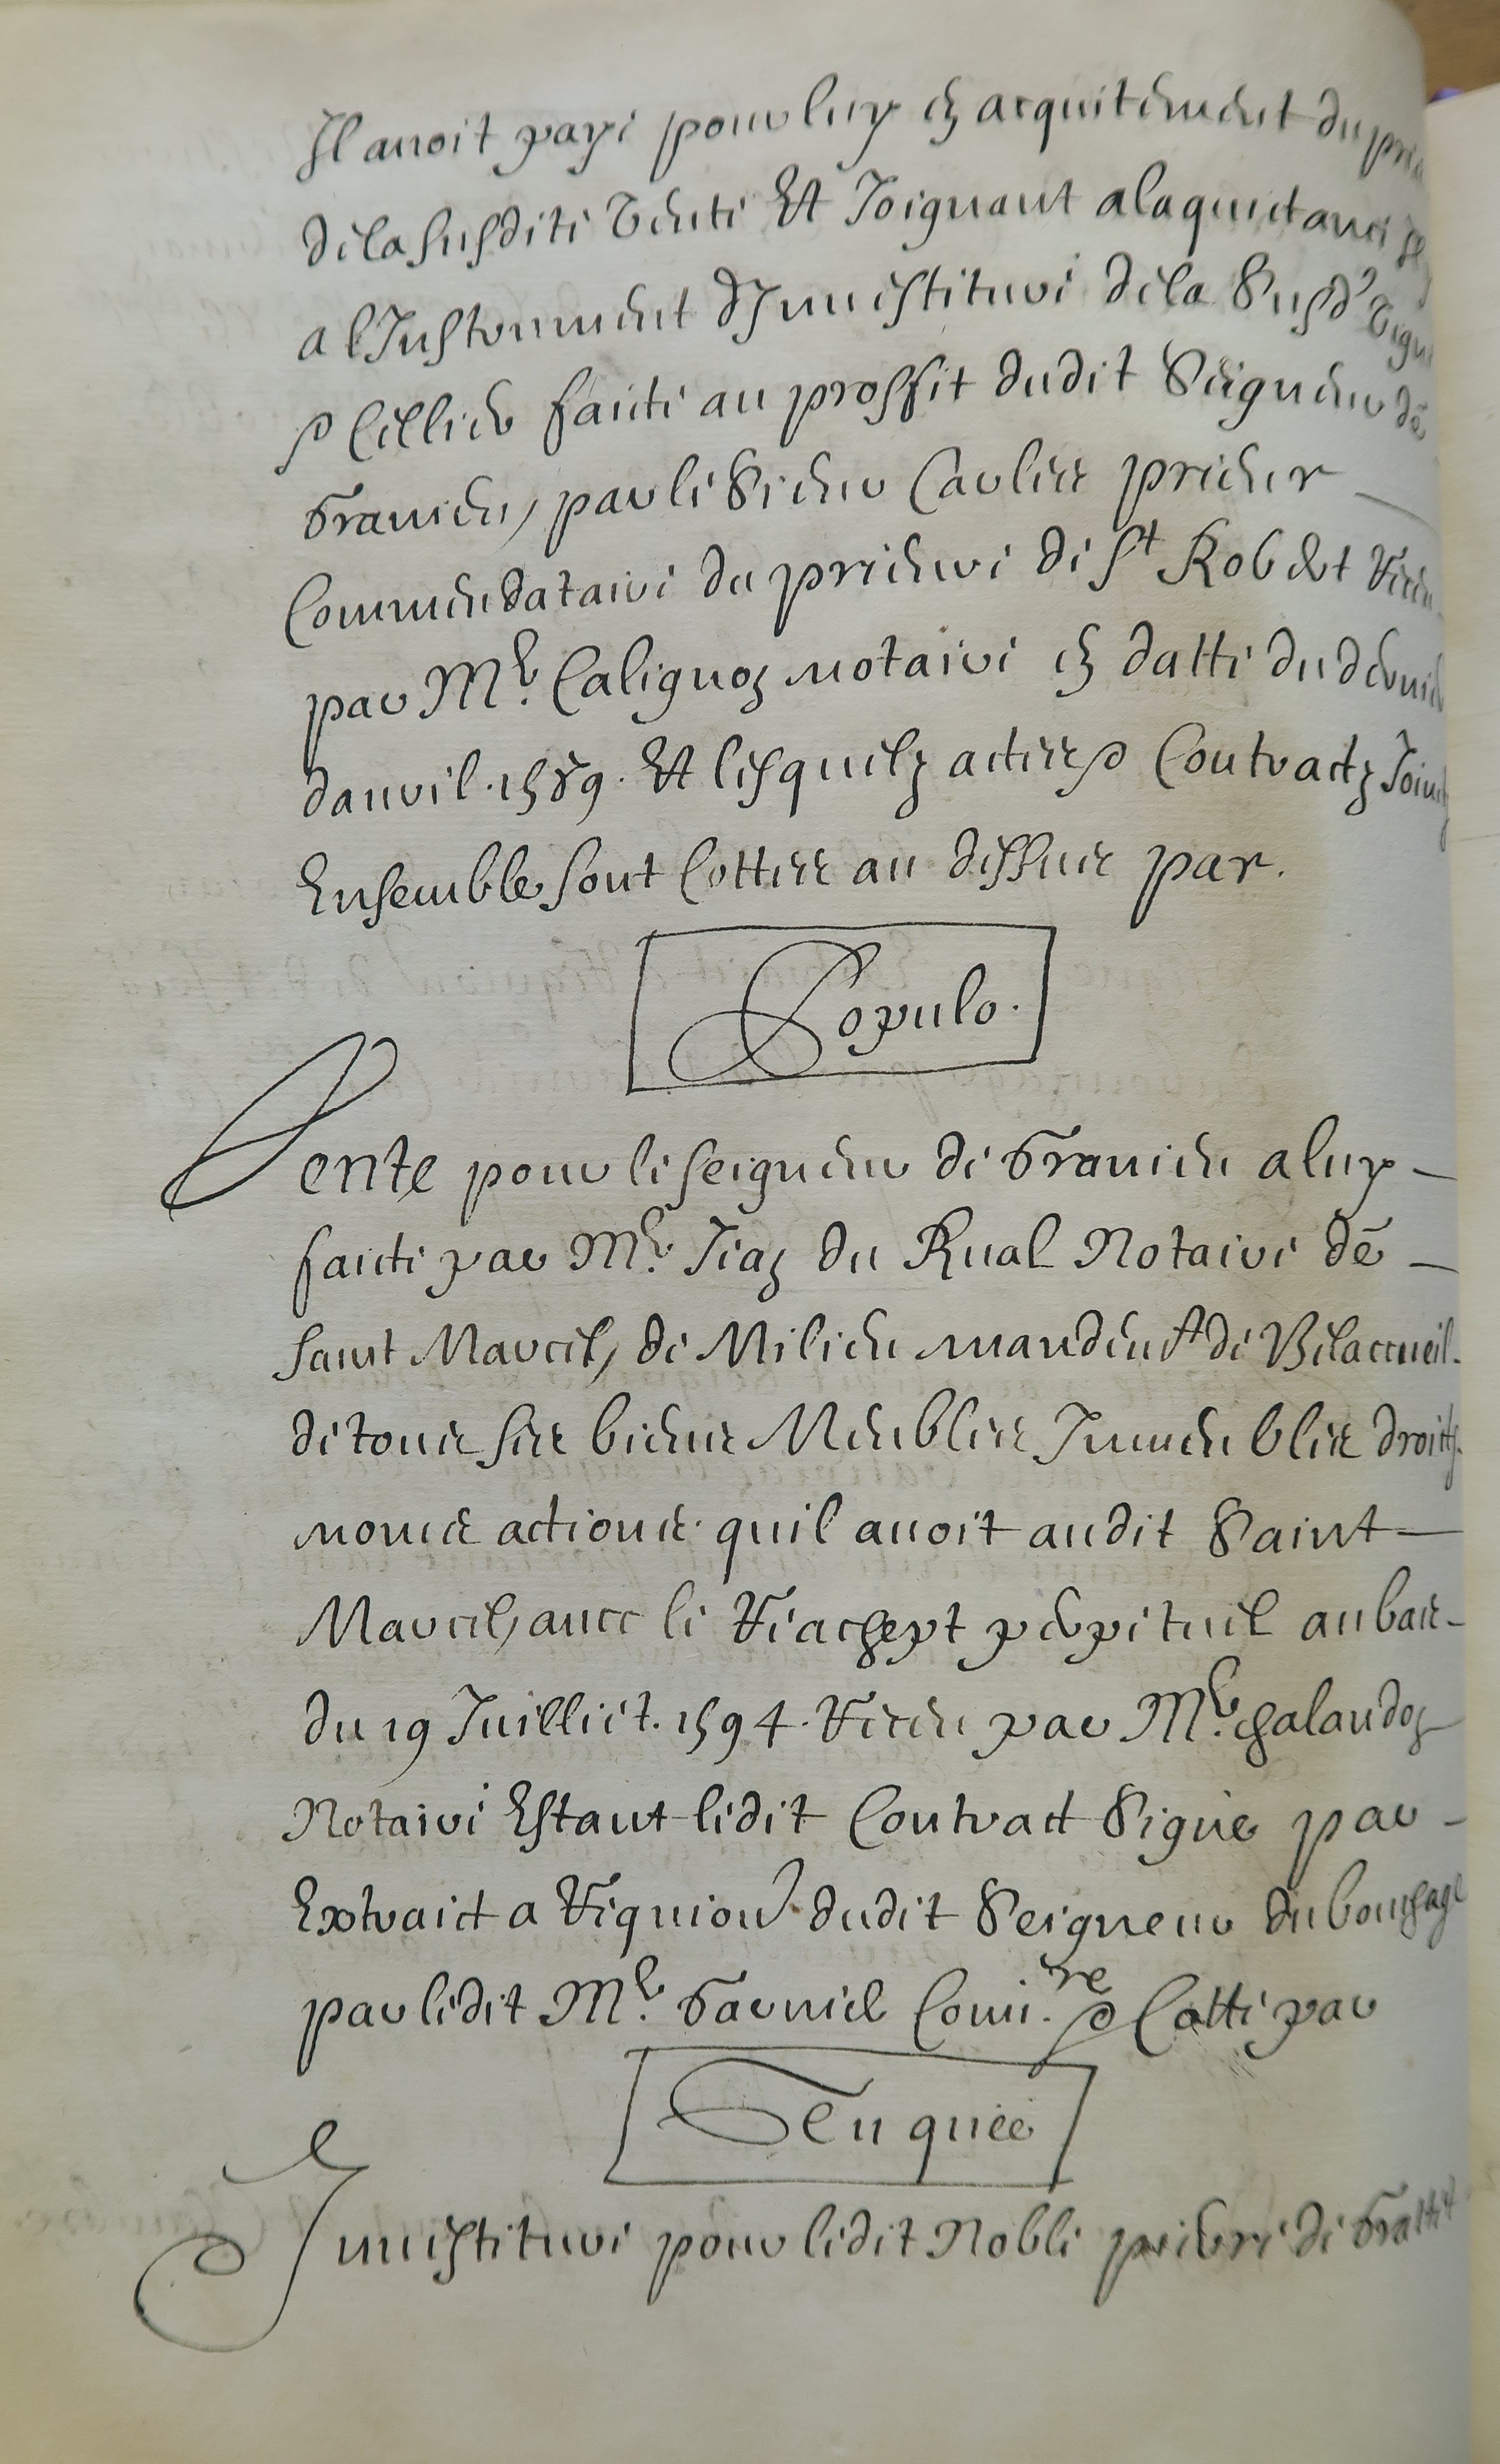 Il auoit payé pour luy en acquitement du prix
de la susdite vente Et Joignant a la quictance
a l'Instrument d'Inuestiture de la Susd.e vigne
& Cellier faicte au proffit dudit Seigneur de
Granieu, par le Sieur Carles prieur
Commendataire du prieure de St Robert Receu
par Me. Calignon notaire en datte du dernier
dauril. 1589. Et lesquelz actes & Contractz Joinctz
Ensemble sont Cottes au dessus par.
Populo.
Vente pour le seigneur de Granieu a luy
faicte par Me. Jean du Rual Notaire de
saint Marcel, de Milieu mandemt de Belaccueil.
de tous ses biens Meubles Immeubles droitz.
noms actions. quil auoit audit Saint
Marcel, auec le Reachept perpetuel au bas
du 19 Juilliet. 1594. Receu par Me. Galandon
Notaire Estant ledit Contract Signé par
Extraict a Requion dudit Seigneur du bouchage
par ledit Me. Garniel Comi.re & Cotte par
Tenquée
Inuestiture pour ledit Noble pierre de Gratet